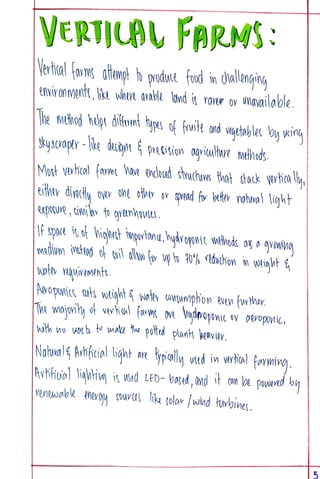 VERTICAL FARMS:
Vertical farms attempt to produce food in challenging
environments, like where arable land is rarer or unavailable.
The method helps different types of fruits and vegetables by using
skyscraper-like designs & precision agriculture methods.
Most vertical farms have enclosed structures that stack vertically,
either directly over one other or spread for better natural light
exposure, similar to greenhouses.
If space is of highest importance, hydroponic methods as a growing
medium instead of soil allow for up to 70% reduction in weight &
water requirements.
Aeroponics cuts weight & water consumption even further.
The majority of vertical farms are hydroponic or aeroponic,
with no to make the potted plants heavier.
Natural & Artificial light are typically used in vertical farming.
Artificial lighting is used LED-based, and it can be powered by
renewable energy sources like solar/wind turbines.
5